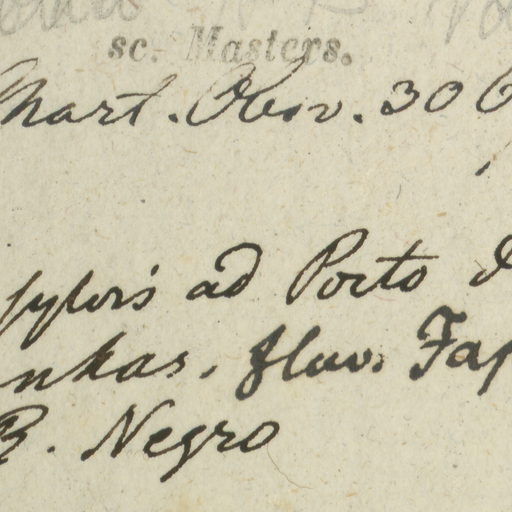 sc. Masters.
Mart. Obsv. 30
sylvis ad Porto d
nkas, fluv. Jap
R. Negro